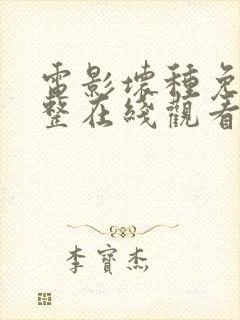 電影壞種免
整在綫觀看
李寶杰